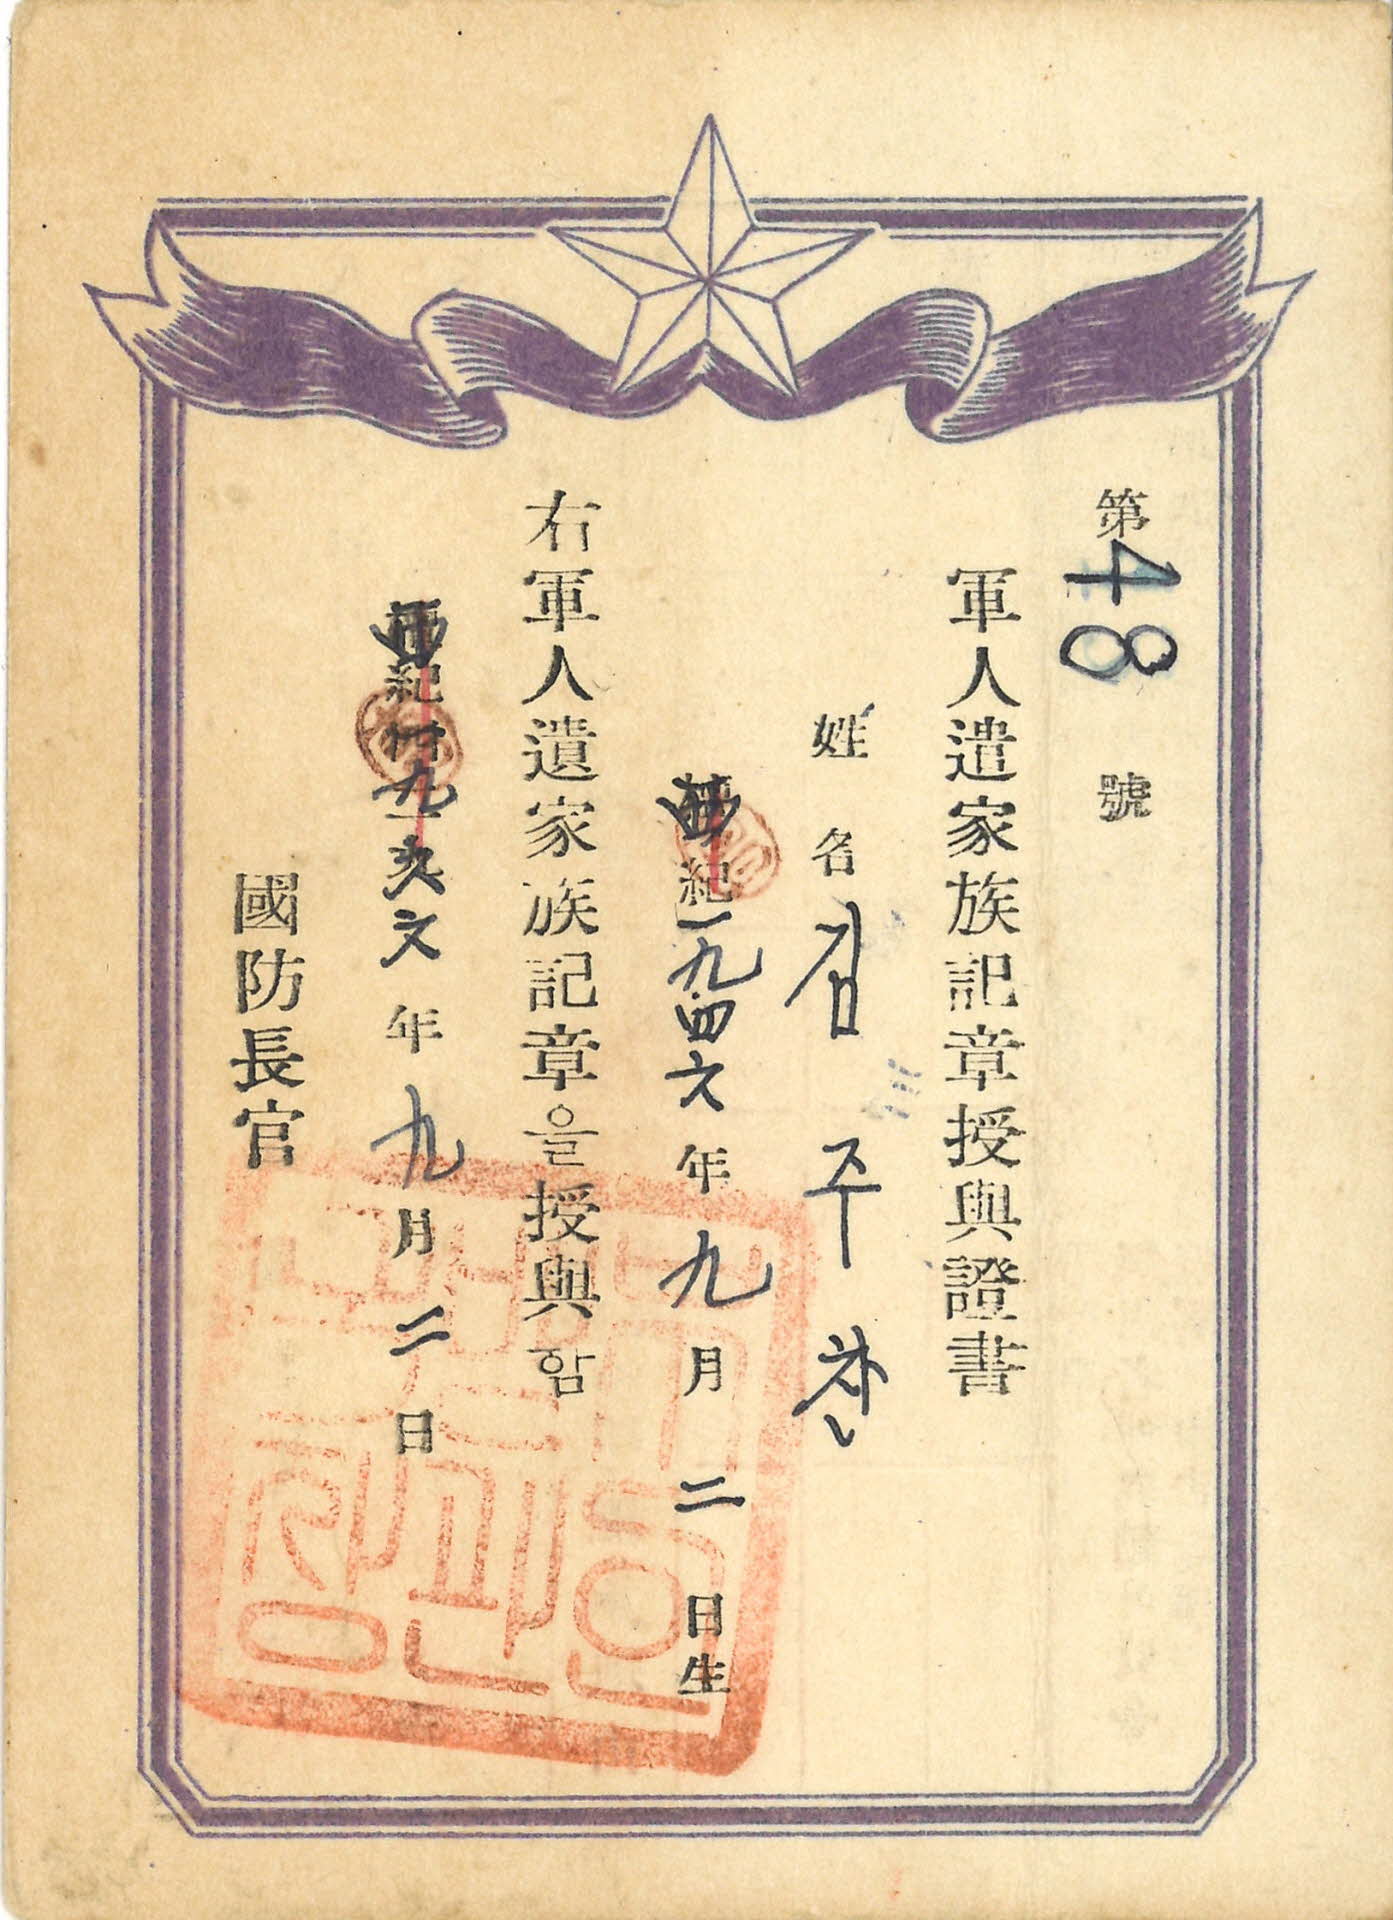 第48號
軍人遺家族記章授與證書
姓名 김주찬
西紀一九四六年九月二日生
右軍人遺家族記章을授與함
西紀 年九月二日
國防長官